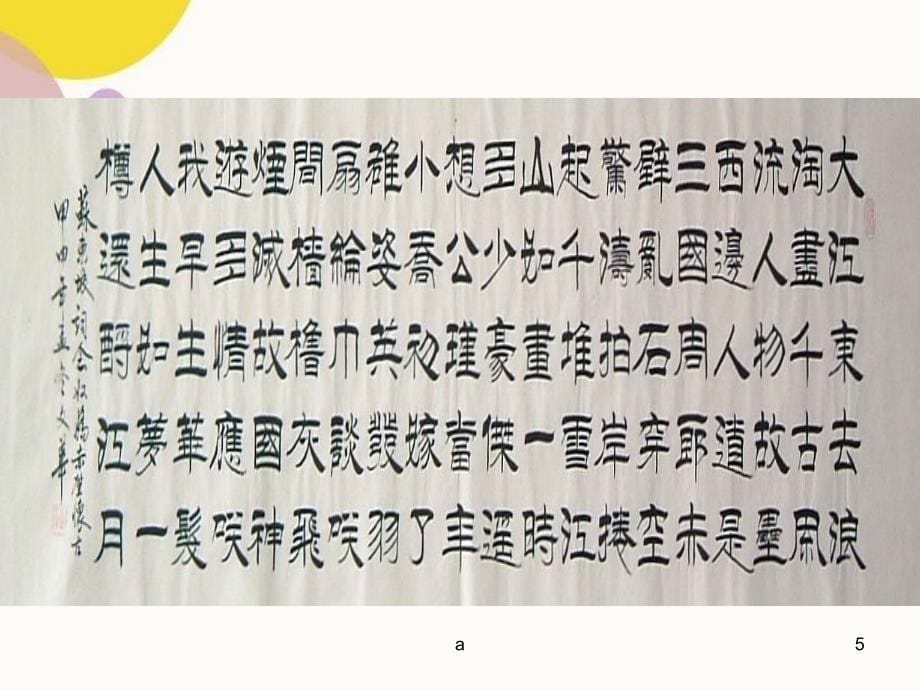 大江東去浪
淘盡千古風
流人物故壘
西邊人道是
三國周郎赤
壁亂石穿空
驚濤拍岸捲
起千堆雪江
山如畫一時
多少豪傑遥
想公瑾當年
小喬初嫁了
雄姿英發羽
扇綸巾談咲
間檣櫓灰飛
煙滅故國神
游多情應咲
我早生華髮
人生如夢一
樽還酹江月
蘇東坡詞念奴嬌赤壁懷古
甲申年孟冬文華
a
5